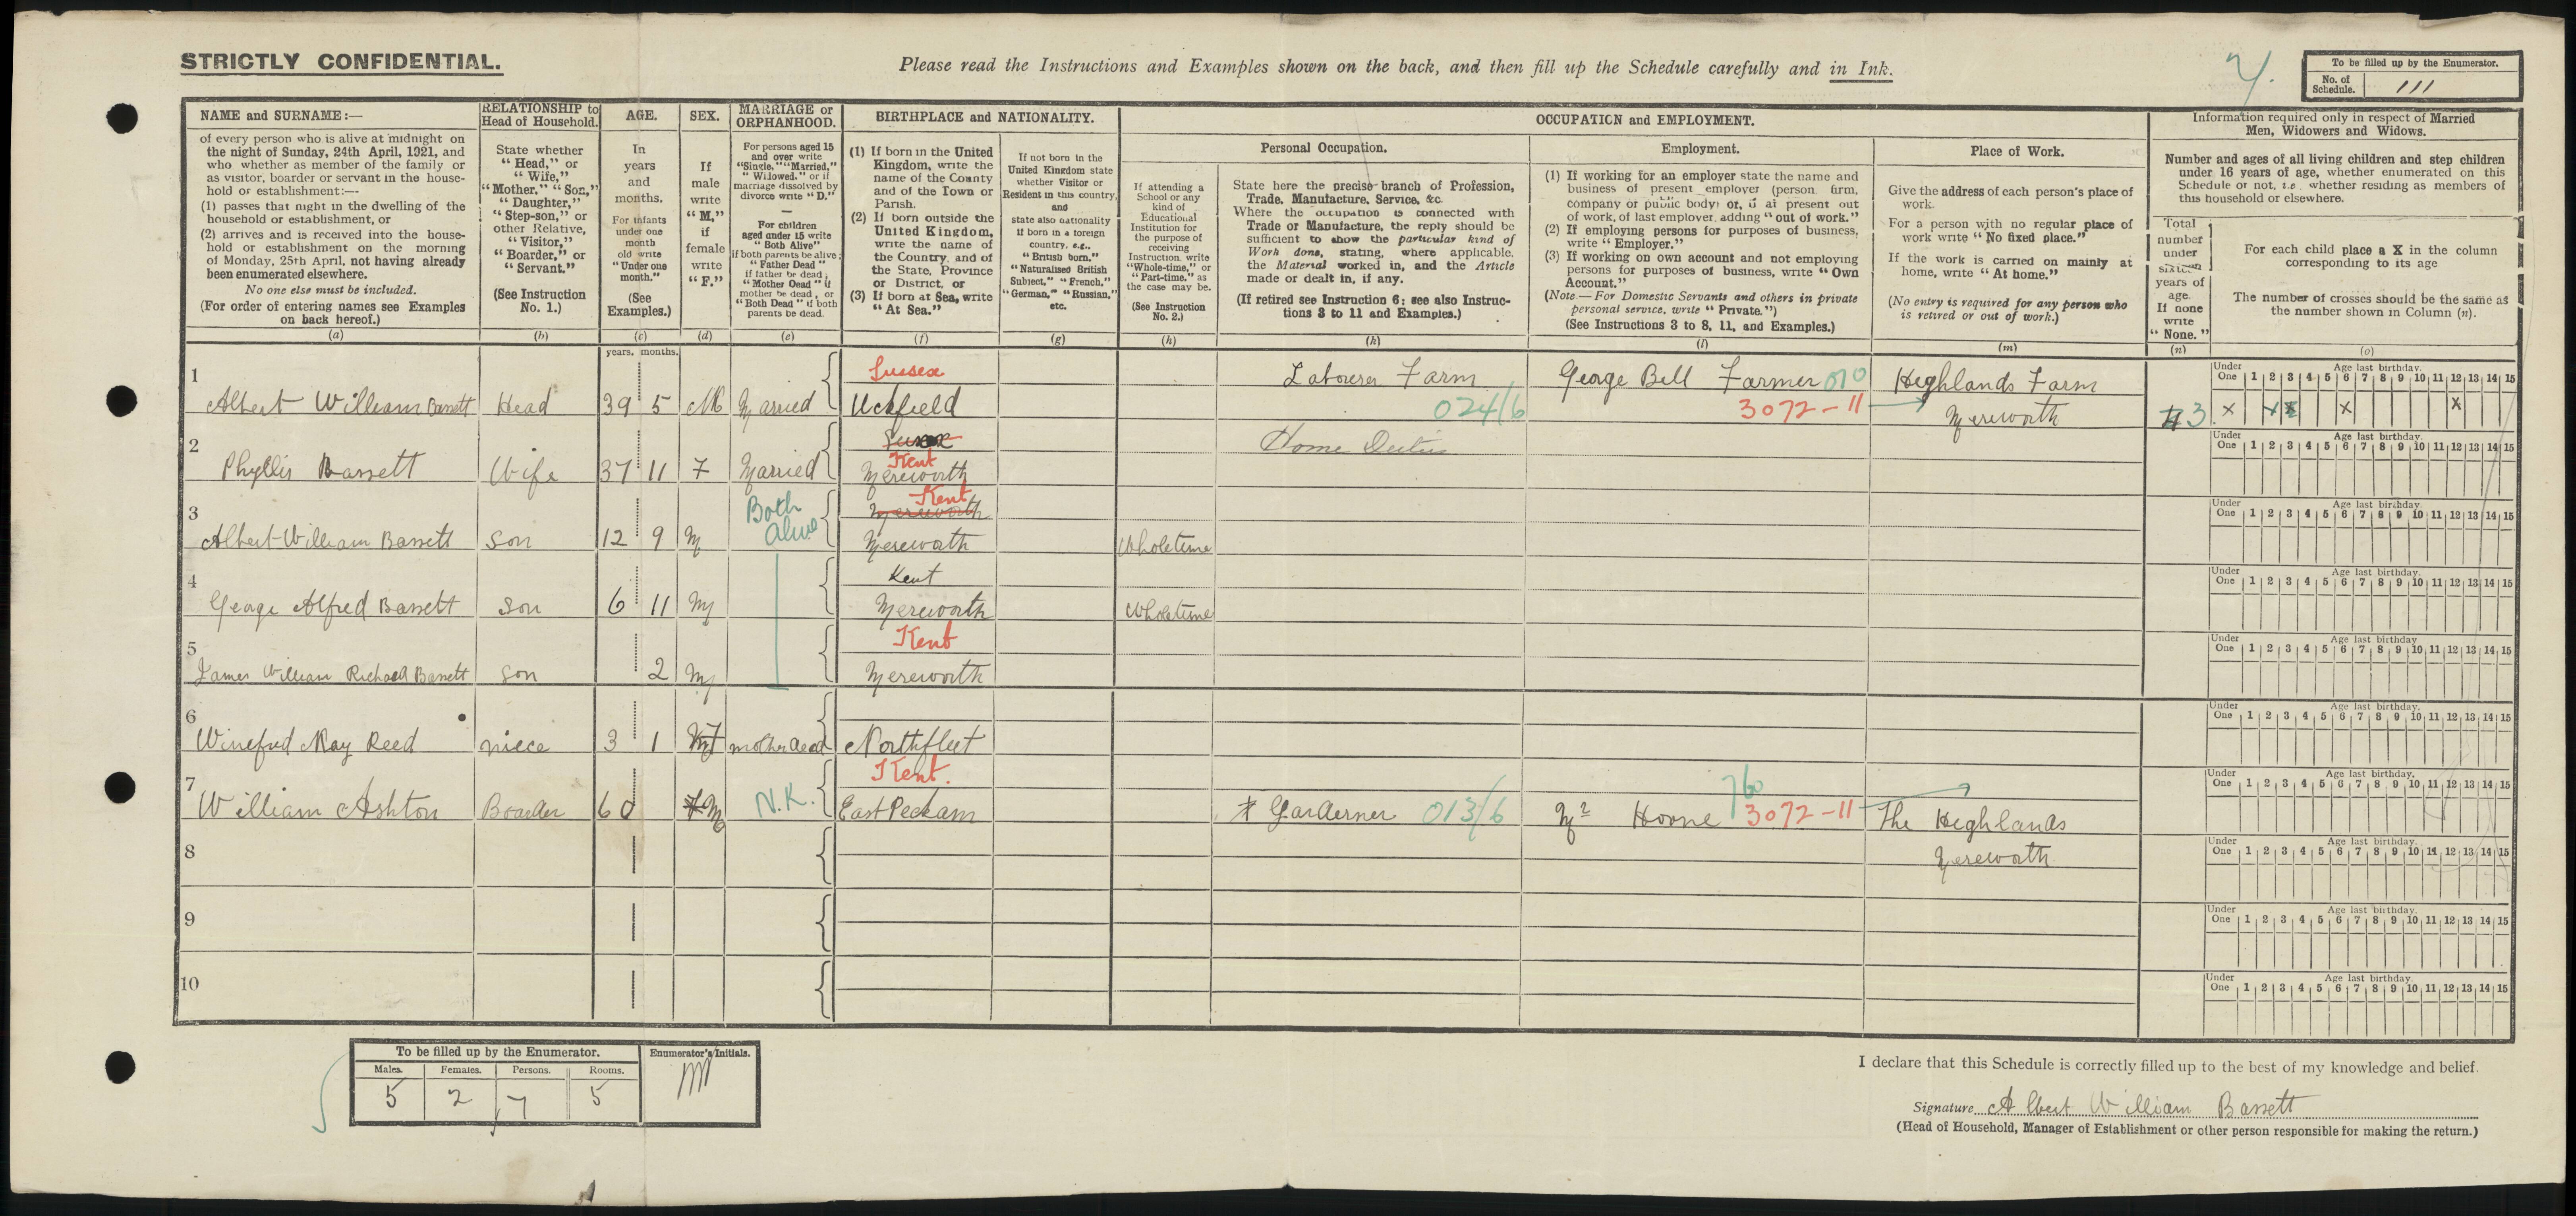 STRICTLY CONFIDENTIAL.
Please read the Instructions and Examples shown on the back, and then fill up the Schedule carefully and in Ink.
To be filled up by the Enumerator.
No. of Schedule. 111
NAME and SURNAME:—
of every person who is alive at midnight on
the night of Sunday, 24th April, 1921, and
who whether as member of the family or
as visitor, boarder or servant in the house-
hold or establishment:—
(1) passes that night in the dwelling of the
household or establishment, or
(2) arrives and is received into the house-
hold or establishment on the morning
of Monday, 25th April, not having already
been enumerated elsewhere.
No one else must be included.
(For order of entering names see Examples
on back hereof.)
(a)
RELATIONSHIP to
Head of Household.
State whether
"Head," or
"Wife,"
"Mother," "Son,"
"Daughter,"
"Step-son," or
other Relative,
"Visitor,"
"Boarder," or
"Servant."
(See Instruction
No. 1.)
(b)
AGE.
In
years
and
months.
For infants
under one
month
old write
"Under one
month."
(See
Examples.)
(c)
SEX.
If
male
write
"M,"
if
female
write
"F."
(d)
MARRIAGE or
ORPHANHOOD.
For persons aged 15
and over write
"Single," "Married,"
"Widowed," or if
marriage dissolved by
divorce write "D."
—
For children
aged under 15 write
"Both Alive"
if both parents be alive;
"Father Dead"
if father be dead;
"Mother Dead" if
mother be dead, or
"Both Dead" if both
parents be dead.
(e)
BIRTHPLACE and NATIONALITY.
(1) If born in the United
Kingdom, write the
name of the County
and of the Town or
Parish.
(2) If born outside the
United Kingdom,
write the name of
the Country, and of
the State, Province
or District, or
(3) If born at Sea, write
"At Sea."
(f)
If not born in the
United Kingdom state
whether Visitor or
Resident in this country,
and
state also nationality
if born in a foreign
country, e.g.,
"British born,"
"Naturalised British
Subject," "French,"
"German," "Russian,"
etc.
(g)
OCCUPATION and EMPLOYMENT.
If attending a
School or any
kind of
Educational
Institution for
the purpose of
receiving
Instruction, write
"Whole-time," or
"Part-time," as
the case may be.
(See Instruction
No. 2.)
(h)
Personal Occupation.
State here the precise branch of Profession,
Trade, Manufacture, Service, &c.
Where the occupation is connected with
Trade or Manufacture, the reply should be
sufficient to show the particular kind of
Work done, stating, where applicable,
the Material worked in, and the Article
made or dealt in, if any.
(If retired see Instruction 6; see also Instruc-
tions 3 to 11 and Examples.)
(k)
Employment.
(1) If working for an employer state the name and
business of present employer (person, firm,
company or public body) or, if at present out
of work, of last employer, adding "out of work."
(2) If employing persons for purposes of business,
write "Employer."
(3) If working on own account and not employing
persons for purposes of business, write "Own
Account."
(Note.—For Domestic Servants and others in private
personal service, write "Private.")
(See Instructions 3 to 8, 11, and Examples.)
(l)
Place of Work.
Give the address of each person's place of
work.
For a person with no regular place of
work write "No fixed place."
If the work is carried on mainly at
home, write "At home."
(No entry is required for any person who
is retired or out of work.)
(m)
Information required only in respect of Married
Men, Widowers and Widows.
Number and ages of all living children and step children
under 16 years of age, whether enumerated on this
Schedule or not, i.e. whether residing as members of
this household or elsewhere.
Total
number
under
sixteen
years of
age.
If none
write
"None."
(n)
For each child place a X in the column
corresponding to its age
The number of crosses should be the same as
the number shown in Column (n).
(o)
years. months.
Under One Age last birthday. 1 2 3 4 5 6 7 8 9 10 11 12 13 14 15
1 Albert William Bassett Head 39 5 M Married Sussex Uckfield Labourer Farm 024/6 George Bell Farmer 010 3072-11 Highlands Farm Mereworth 3 X X X X
2 Phyllis Bassett Wife 37 11 F Married Kent Mereworth Home Duties
3 Albert William Bassett Son 12 9 M Both Alive Kent Mereworth Mereworth Wholetime
4 George Alfred Bassett Son 6 11 M Kent Mereworth Wholetime
5 James William Richard Bassett Son 2 M Kent Mereworth
6 Winefred May Reed niece 3 1 F mother dead Northfleet
7 William Ashton Boarder 60 M N.K. Kent. East Peckam Garderner 013/6 Mr Hoone 760 3072-11 The Highlands Mereworth
8
9
10
To be filled up by the Enumerator.
Males. Females. Persons. Rooms.
5 2 7 5
Enumerator's Initials.
I declare that this Schedule is correctly filled up to the best of my knowledge and belief.
Signature Albert William Bassett
(Head of Household, Manager of Establishment or other person responsible for making the return.)